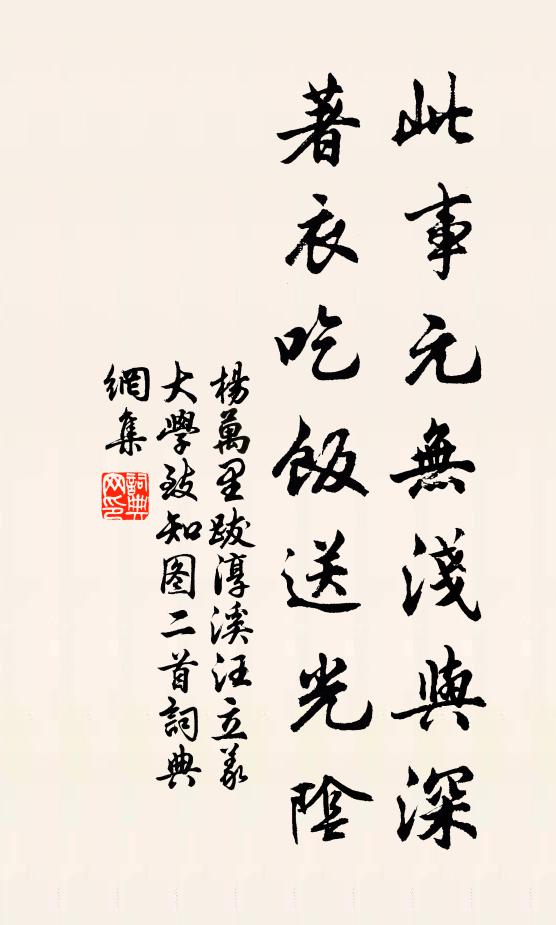 此事元無淺與深
著衣吃飯送光陰
楊萬里跋淳溪汪立義
大學致知图二首詞典
網集
詞典网印